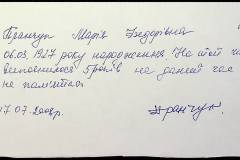 Франчук Марія Федорівна
06.03.1927 року народження. На той ч
виповнилося 5 років на даний час
не пам'ятаю.
17.07.2008р. Франчук